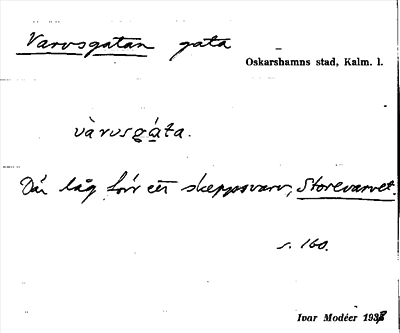 Varvsgatan gata
Oskarshamns stad, Kalm. l.
vàrvsgáta.
Där låg förr ett skeppsvarv, Storevarvet.
s. 160.
Ivar Modéer 1933